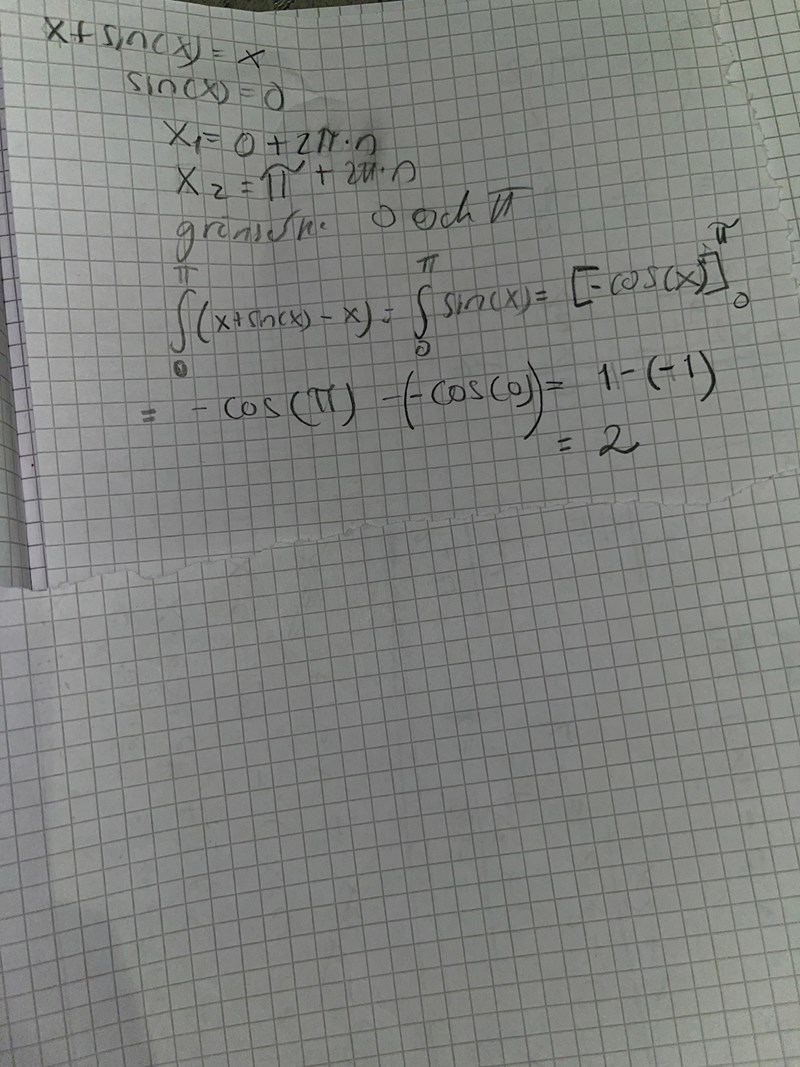 x + sin(x) = x
sin(x) = 0
x₁ = 0 + 2π·n
x₂ = π + 2π·n
0 och π
∫₀^π (x+sin(x) - x) = ∫₀^π sin(x) = [-cos(x)]₀^π
= -cos(π) - (-cos(0)) = 1 - (-1)
= 2